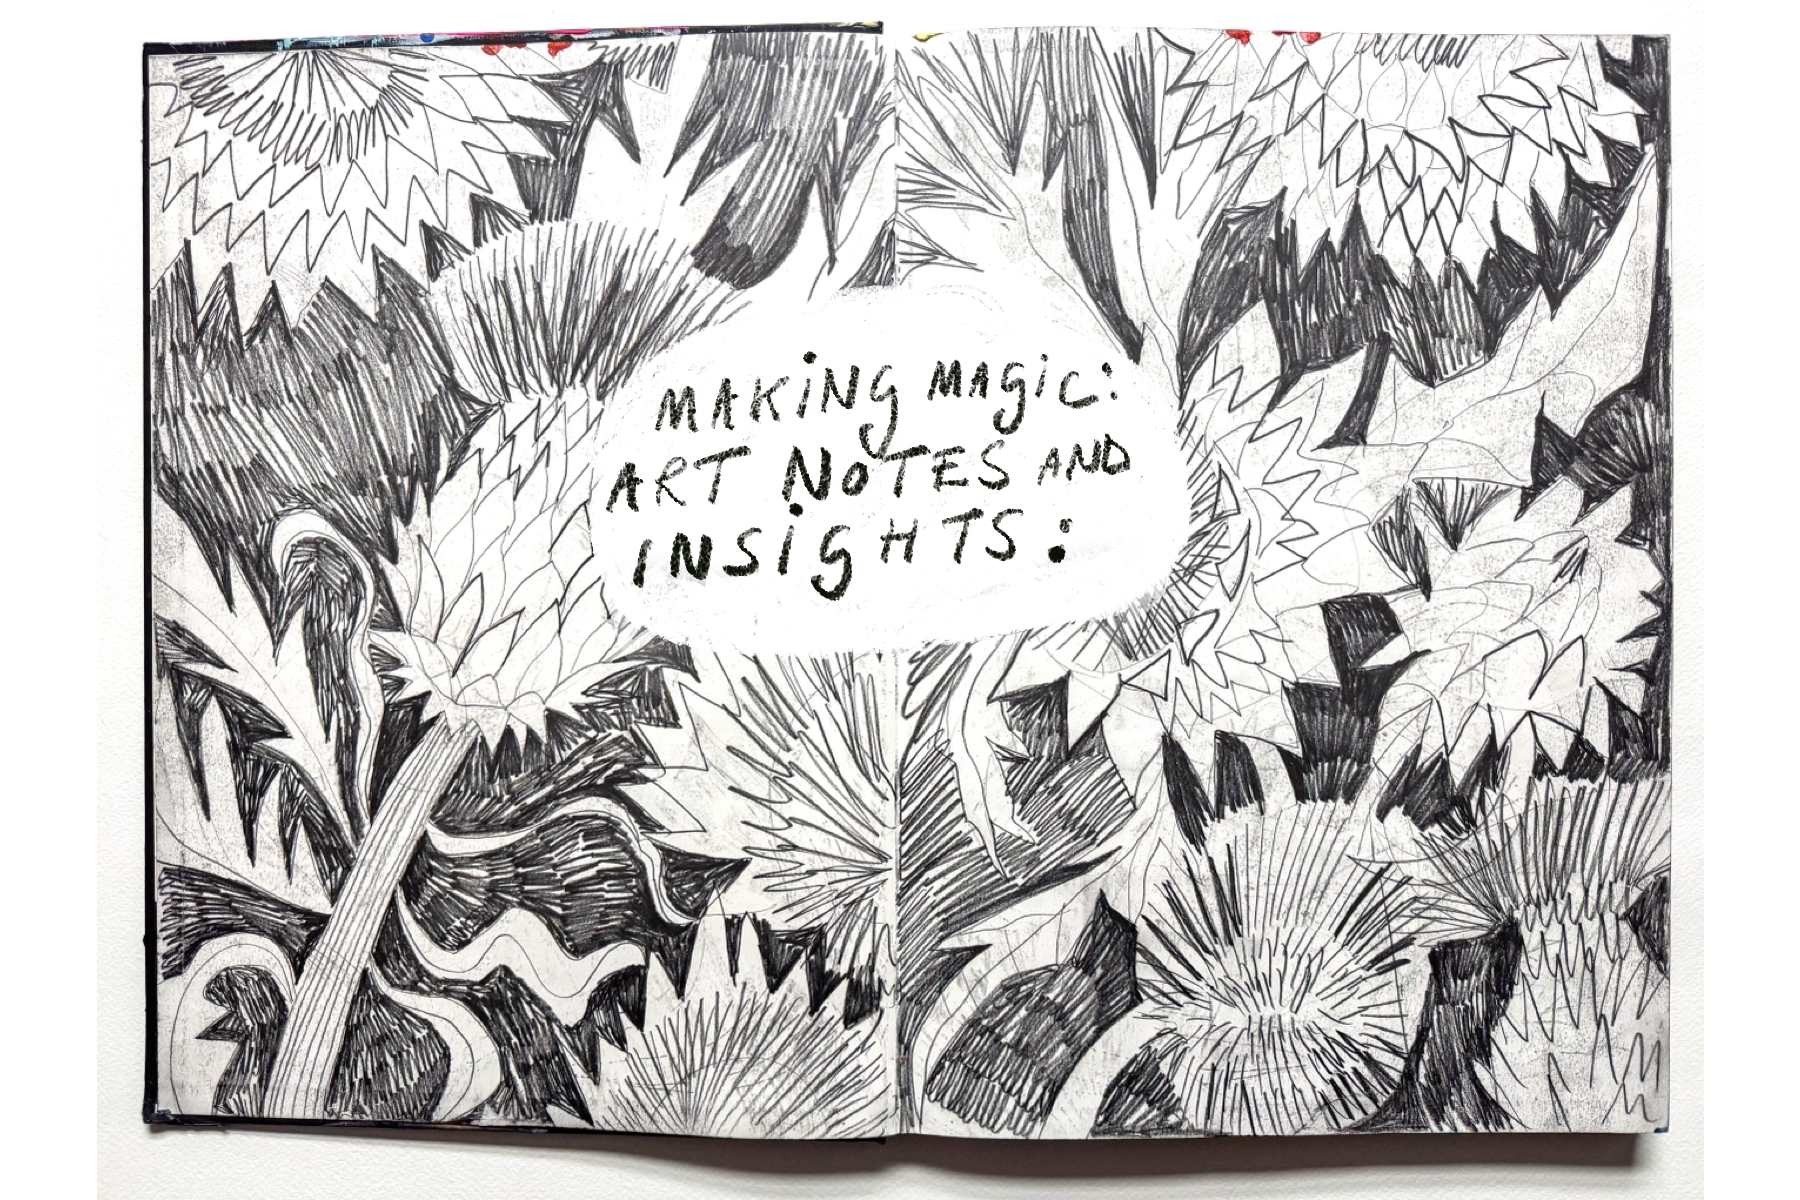 MAKiNg MAgiC:
ART NoTES AND
iNSigHTS: